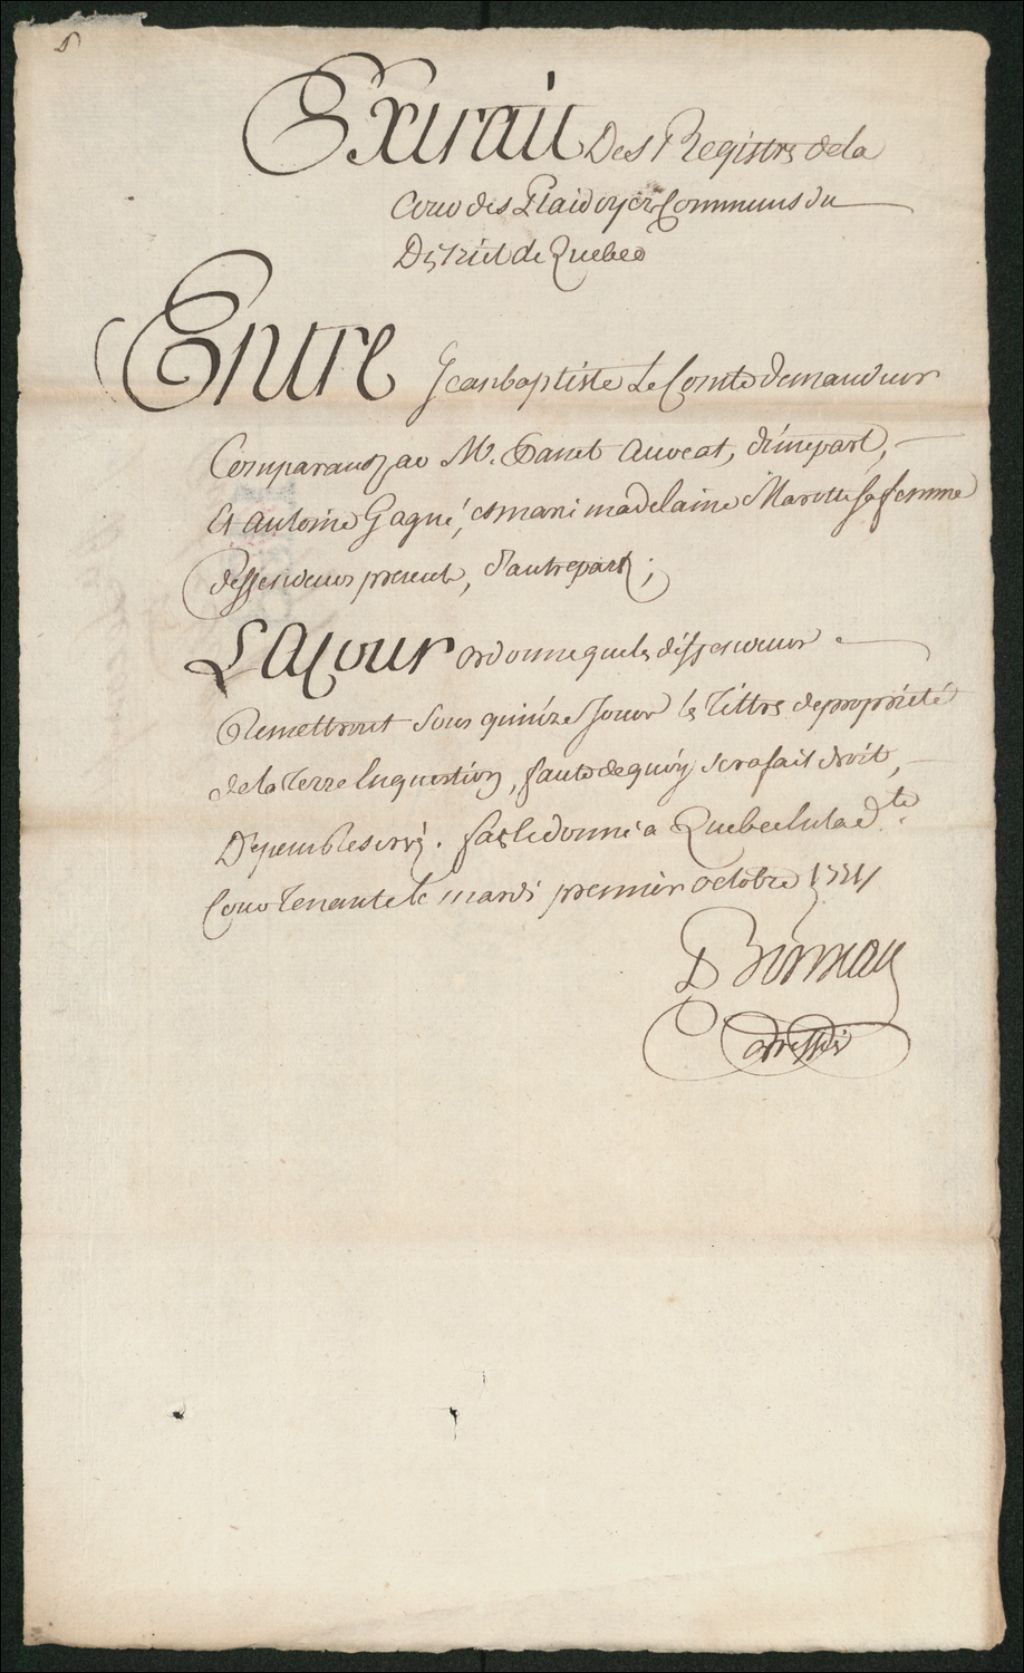 Extrait Des Registres de la
Cour des Plaidoyers Communs du
District de Quebec
Entre Jean baptiste Le Comte demandeur
Comparant par M. Panet Auvocat, d'une part,
Et antoine Gagné, et marie madelaine Marotte sa femme
deffendeurs presents, d'autre part;
LA Cour ordonne que les deffendeurs
Remettront sous quinze Jours les Tittres de propriété
de la Terre En question, faute de quoy sera fait droit,
Depens Reservés. fait et donné a Quebec En la d.te
Cour Tenante le mardi premier octobre